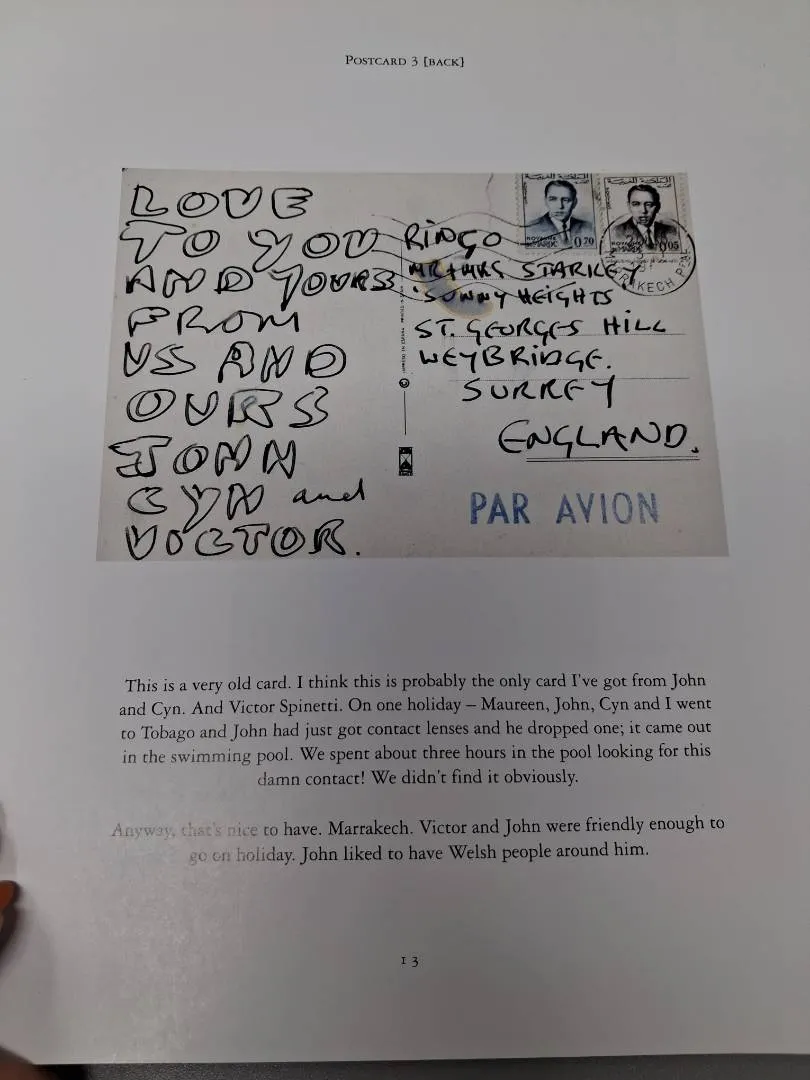 POSTCARD 3 [BACK]
LOVE
TO YOU
AND YOURS
FROM
US AND
OURS
JOHN
CYN and
VICTOR.
RINGO
MR + MRS STARKEY
'SUNNY HEIGHTS'
ST. GEORGES HILL
WEYBRIDGE.
SURREY
ENGLAND.
0,70
0,05
PAR AVION
This is a very old card. I think this is probably the only card I've got from John
and Cyn. And Victor Spinetti. On one holiday – Maureen, John, Cyn and I went
to Tobago and John had just got contact lenses and he dropped one; it came out
in the swimming pool. We spent about three hours in the pool looking for this
damn contact! We didn't find it obviously.
Anyway, that's nice to have. Marrakech. Victor and John were friendly enough to
go on holiday. John liked to have Welsh people around him.
13